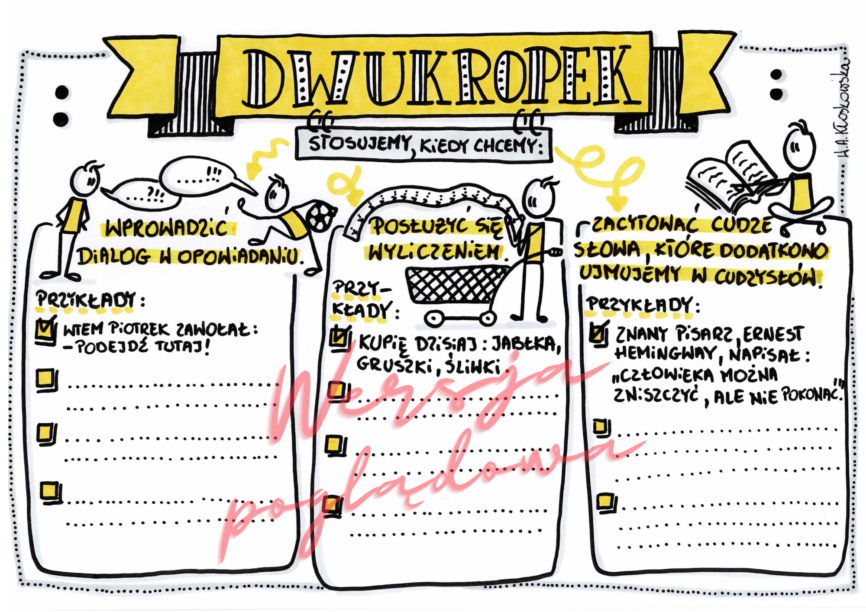 DWUKROPEK
STOSUJEMY, KIEDY CHCEMY:
H.A. Kłoskowska
?!!
!!!
WPROWADZIĆ
DIALOG W OPOWIADANIU.
PRZYKŁADY:
WTEM PIOTREK ZAWOŁAŁ:
– PODEJDŹ TUTAJ!
POSŁUŻYĆ SIĘ
WYLICZENIEM.
PRZY-
KŁADY:
KUPIĘ DZISIAJ: JABŁKA,
GRUSZKI, ŚLIWKI.
ZACYTOWAĆ CUDZE
SŁOWA, KTÓRE DODATKOWO
UJMUJEMY W CUDZYSŁÓW.
PRZYKŁADY:
ZNANY PISARZ, ERNEST
HEMINGWAY, NAPISAŁ:
„CZŁOWIEKA MOŻNA
ZNISZCZYĆ, ALE NIE POKONAĆ."
Wersja
poglądowa